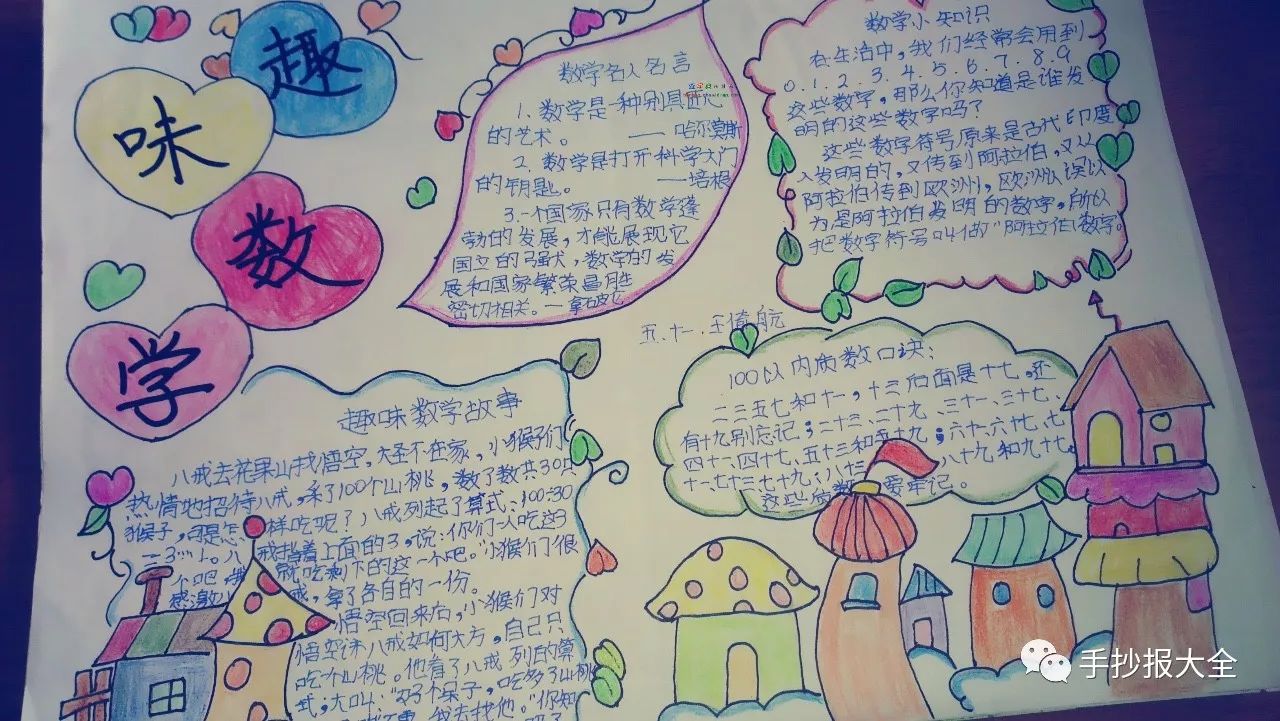 趣
味
数
学
数学名人名言
1、数学是一种别具匠心
的艺术。 —— 哈尔莫斯
2、数学是打开科学大门
的钥匙。 ——培根
3.一个国家只有数学蓬
勃的发展，才能展现它
国立的强大，数学的发
展和国家繁荣昌盛
密切相关。—拿破仑
数学小知识
在生活中，我们经常会用到
0.1.2.3.4.5.6.7.8.9
这些数字，那么你知道是谁发
明的这些数字吗？
这些数学符号原来是古代印度
人发明的，又传到阿拉伯，又从
阿拉伯传到欧洲，欧洲人误以
为是阿拉伯发明的数字，所以
把数字符号叫做“阿拉伯数字
五、十一、王倚航
趣味数学故事
八戒去花果山找悟空，大圣不在家，小猴子们
热情地招待八戒，采了100个山桃，数了数共30只
猴子，可是怎样吃呢？八戒列起了算式：100÷30
=3……1。八戒指着上面的3，说：你们一人吃这3
个吧，我就吃剩下的这一个吧。”小猴们很
感激八戒，拿了各自的一份。
悟空回来后，小猴们对
悟空讲八戒如何大方，自己只
吃个山桃。他看了八戒列的算
式，大叫：“好个呆子，吃多了山桃
我去找他。”你知
100以内质数口诀：
二三五七和十一，十三后面是十七，还
有十九别忘记；二十三、二十九、三十一、三十七、
四十一、四十七、五十三和五十九；六十一、六十七、七
十一、七十三、七十九；八十三、八十九和九十七，
这些质数要牢记。
手抄报大全